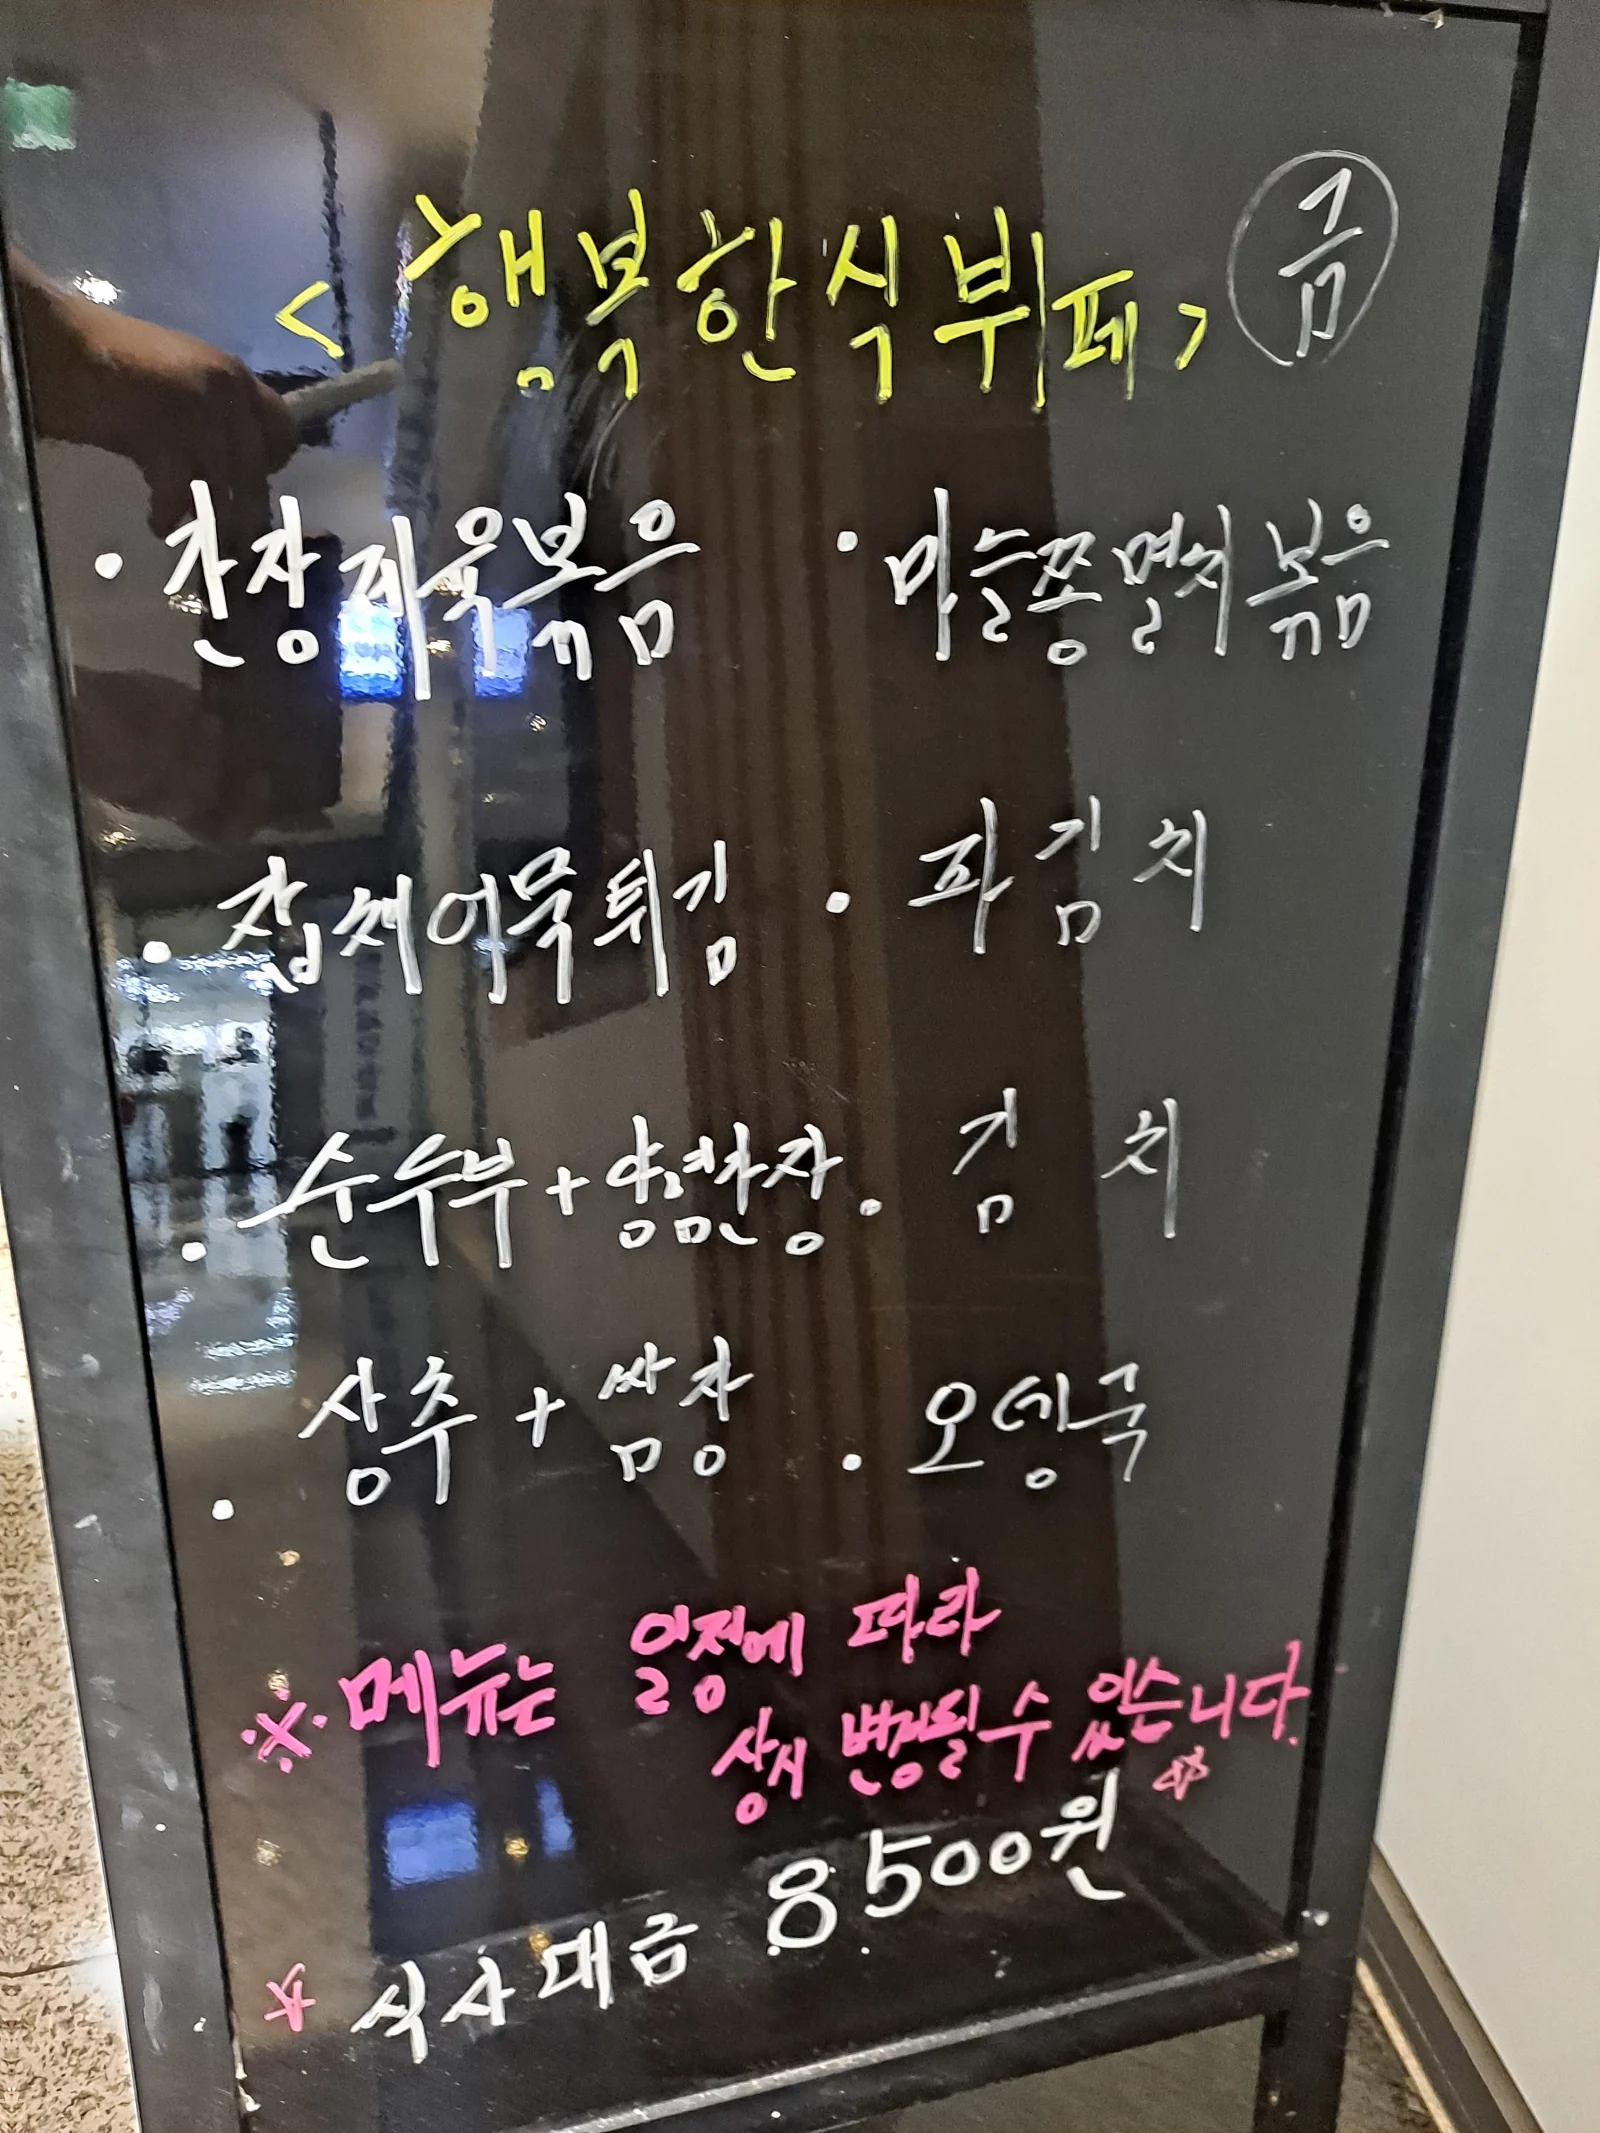 <행복한식뷔페> 금
· 간장제육볶음 · 마늘쫑멸치볶음
· 잡채어묵튀김 · 파김치
· 순수부+양념간장 · 김치
· 상추+쌈장 · 오뎅국
※메뉴는 일정에 따라
상시 변경될 수 있습니다.☆
☆ 식사대금 8500원